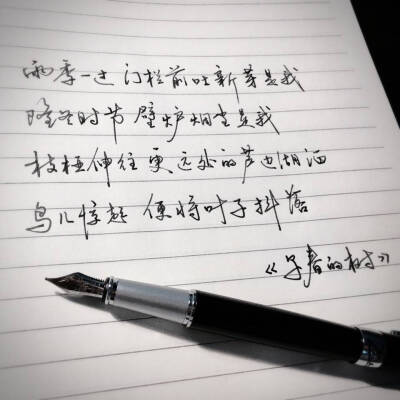 雨季一过 门栏前吐新芽是我
隆冬时节 壁炉烟尘是我
枝桠伸往更远处的芦边湖泗
鸟儿惊起 便将叶子抖落
《早春的树》